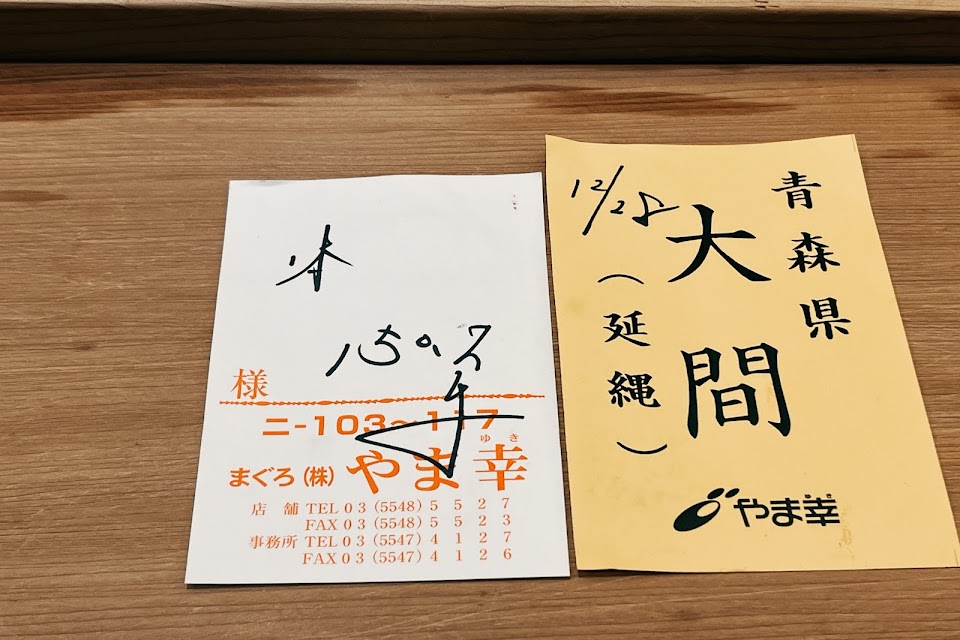 様
ニ-103~117
まぐろ(株)やま幸
ゆき
店舗 TEL 03(5548)5527
FAX 03(5548)5523
事務所 TEL 03(5547)4127
FAX 03(5547)4126
青森県
大間
12/25
(延縄)
やま幸